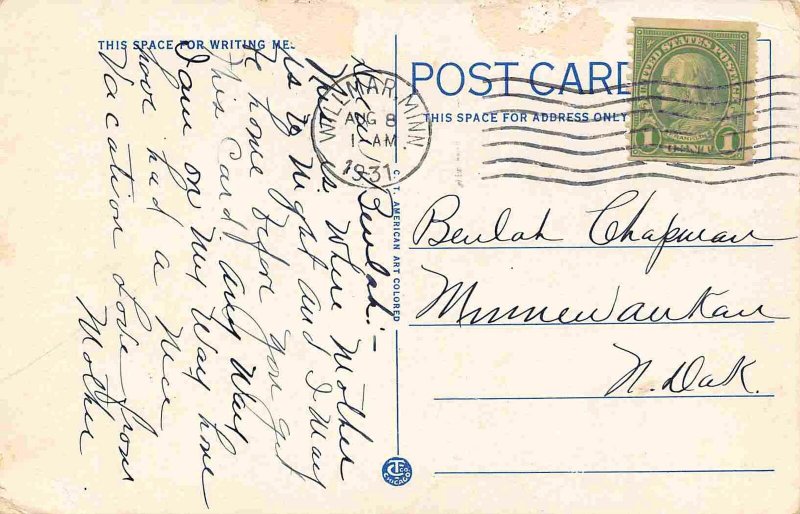 THIS SPACE FOR WRITING MES
POST CARD
THIS SPACE FOR ADDRESS ONLY
WILLMAR, MINN
AUG 8
1-AM
1931
UNITED STATES POSTAGE
FRANKLIN
1 CENT 1
C. T. AMERICAN ART COLORED
Dear Beulah:-
This is where Mother
is to Night and I May
be home before you get
This Card any Way
I am on My Way home
have had a Nice
Vacation Love from
Mother
Beulah Chapman
Minnewaukan
N. Dak.
CHICAGO